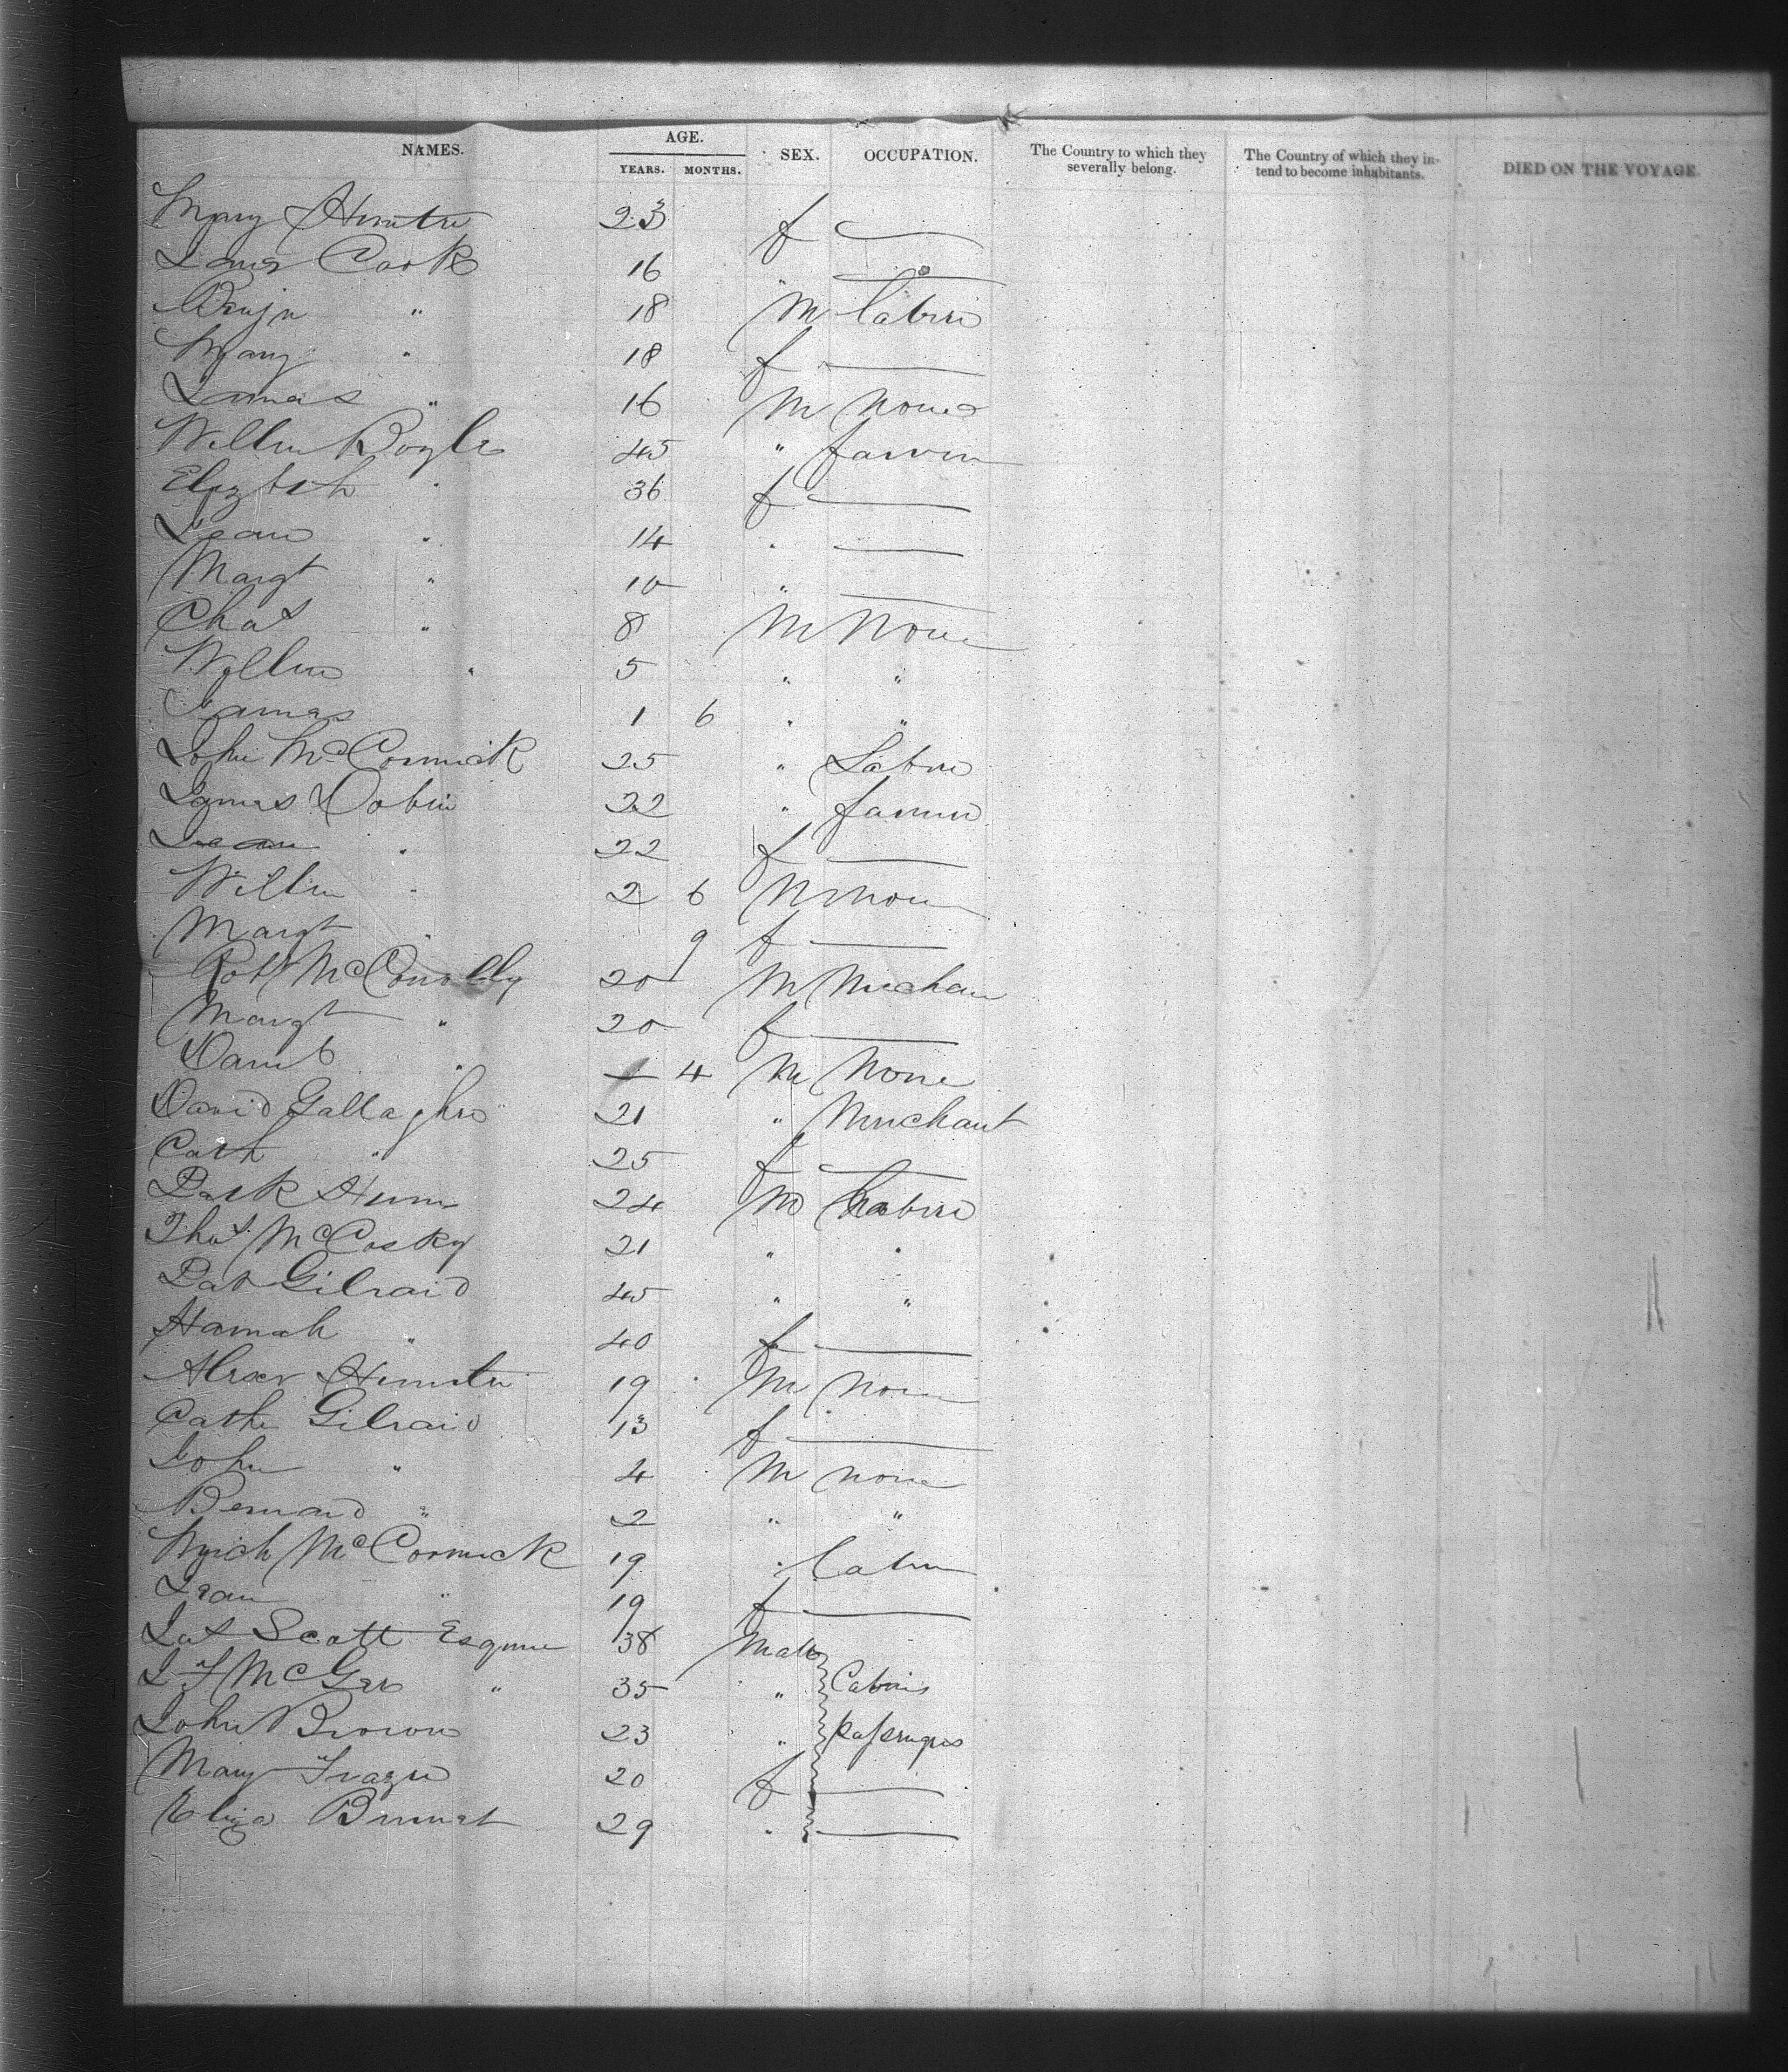 NAMES. AGE. SEX. OCCUPATION. The Country to which they severally belong. The Country of which they intend to become inhabitants. DIED ON THE VOYAGE.
YEARS. MONTHS.
Mary Hunter 23 f —
Cook 16 " —
Benjn " 18 M labore
Mary " 18 f —
James " 16 M None
Willm Boyle 45 " farmer
Elizbth " 36 f —
Jean " 14 " —
Margt " 10 " —
Chas " 8 M None
Willm " 5 " "
James 1 6 " "
John McCormick 25 " Labore
James Dobin 22 " farmer
Jean " 22 f —
Willm " 2 6 M None
Margt " 9 f —
Robt McConolly 20 M Mechan
Margt " 20 f —
" 4 M None
David Gallagher 21 " Merchant
Cath " 25 f —
24 M Labore
Thos McCosky 21 " "
Pat Gilraid 45 " "
Hannah " 40 f —
Alexr Hunter 19 M None
Cathe Gilraid 13 f —
John " 4 M none
Bernard " 2 " "
Mich McCormick 19 " Labore
Jean " 19 f —
Jas Scott Esquire 38 Male
J F McGee " 35 " Cabin
John Brown 23 " passengers
Mary Frazer 20 f —
Eliza 29 " —